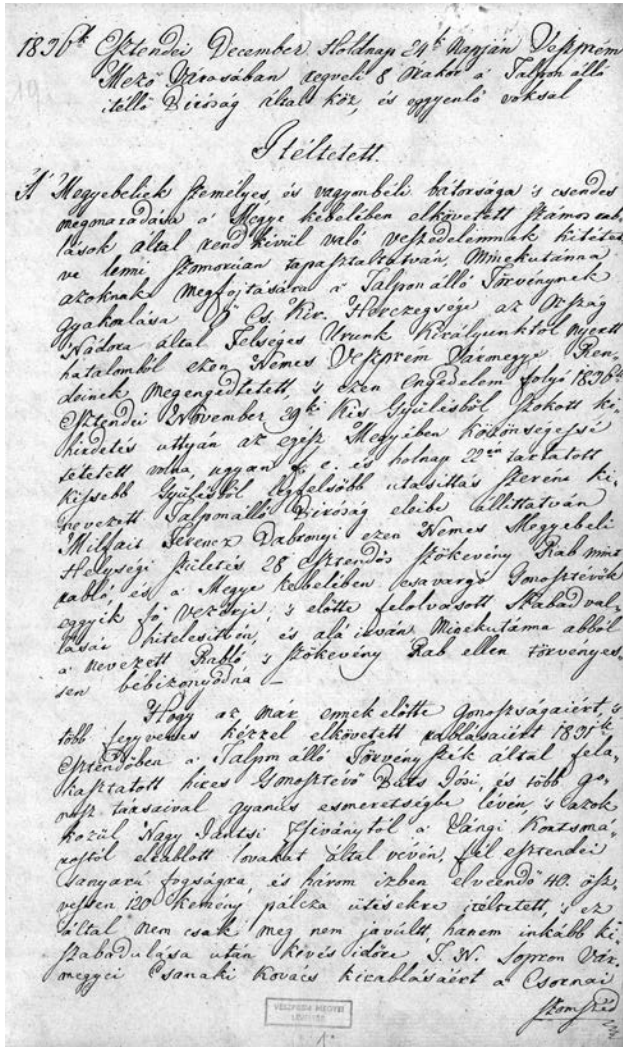 1836k Esztendei December Holdnap 24k Napján Veszprém
Mező Városában regveli 8 órakor a Talpon álló
itéllő Biróság által köz, és eggyenlő voksal
Itéltetett.
A' Megyebeliek személyes, és vagyonbéli bátorsága 's csendes
megmaradása a' Megye kebelében elkövetett számos rab-
lások által rend kivül való veszedelemnek kitétet-
ve lenni szomorúan tapasztaltatván, Minekutánna
azoknak megfojtására a' Talpon álló Törvénynek
gyakorlása Ő Cs. Kir. Herczegsége az Ország
Nádora által Felséges Urunk Királyunktól nyertt
hatalomból ezen Nemes Veszprém Vármegye Ren-
deinek megengedtetett, 's ezen engedelem folyó 1836k
Esztendei November 29ki Kis Gyülésből szokott ki-
hirdetés uttyán az egész Megyében közönségessé
tétetett volna, ugyan f. e. és holnap 22en tartatott
kissebb Gyülésből legfelsőbb utasittás szerént ki-
nevezett Talponálló Biróság eleibe állittatván
Milfait Ferencz Dabronyi ezen Nemes Megyebeli
Helységi születés 28 esztendős szökevény Rab mint
rabló és a' Megye kebelében csavargó Gonosztévők
eggyik fő vezérje, 's előtte felolvasott szabad val-
lásai hitelesittvén, és alá irván, Minekutánna abból
a' nevezett Rabló, 's szökevény Rab ellen törvényes-
sen bébizonyodna —
Hogy az már ennek előtte gonoszságaiért, 's
több fegyveres kézzel elkövetett rablásaiért 1831k
Esztendőben a' Talpon álló Törvény szék által fela-
kasztatott hires Gonosztévő Bats Jósi, és több go-
nosz társaival gyanús esmeretségbe lévén, 's azok
közül Nagy Jantsi Istvántól a' Sángi Kortsmá-
rostól elrablott lovakat által vévén, fél esztendei
sanyarú fogságra, és három izben elveendő 40. ösz-
vessen 120 kemény pálcza ütésekre itéltetett, 's ez
által nem csak meg nem javúltt, hanem inkább ki-
szabadulása után kevés időre T. N. Sopron Vár-
megyei Csanaki Kovács kirablásáért a' Csornai
szomszéd
VESZPRÉM MEGYEI
LEVÉLTÁR
1.